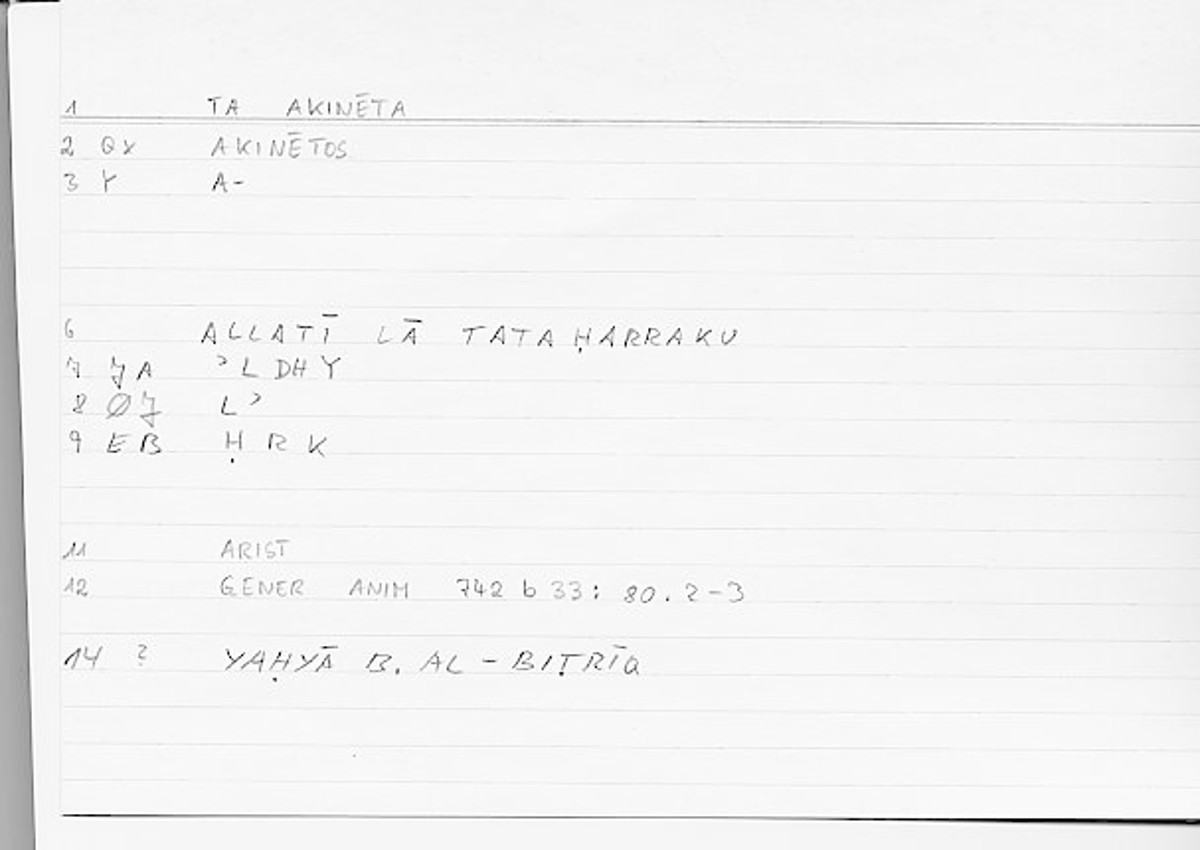 1 TA AKINĒTA
2 QX AKINĒTOS
3 Y A-
6 ALLATĪ LĀ TATAḤARRAKU
7 JA ʾLDHY
8 ØJ Lʾ
9 EB ḤRK
11 ARIST
12 GENER ANIM 742 b 33: 80.2-3
14 ? YAḤYĀ B. AL-BIṬRĪQ